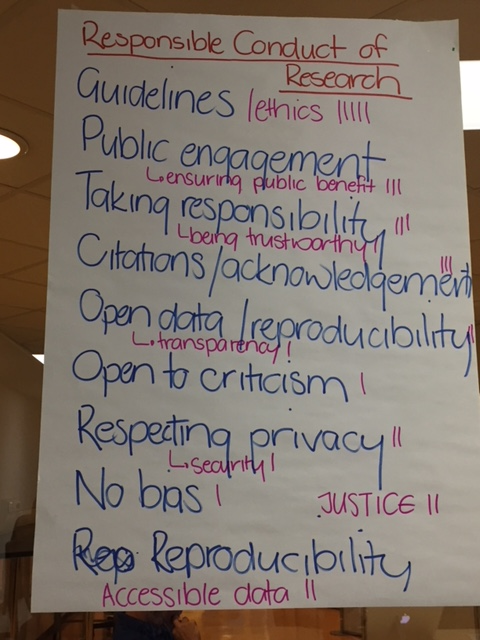 Responsible Conduct of
Research
Guidelines /ethics |||||
Public engagement
↳ensuring public benefit |||
Taking responsibility |||
↳being trustworthy |
Citations/acknowledgement |||
Open data /reproducibility |
↳transparency |
Open to criticism |
Respecting privacy ||
↳security |
No bias |
JUSTICE ||
Rep Reproducibility
Accessible data ||